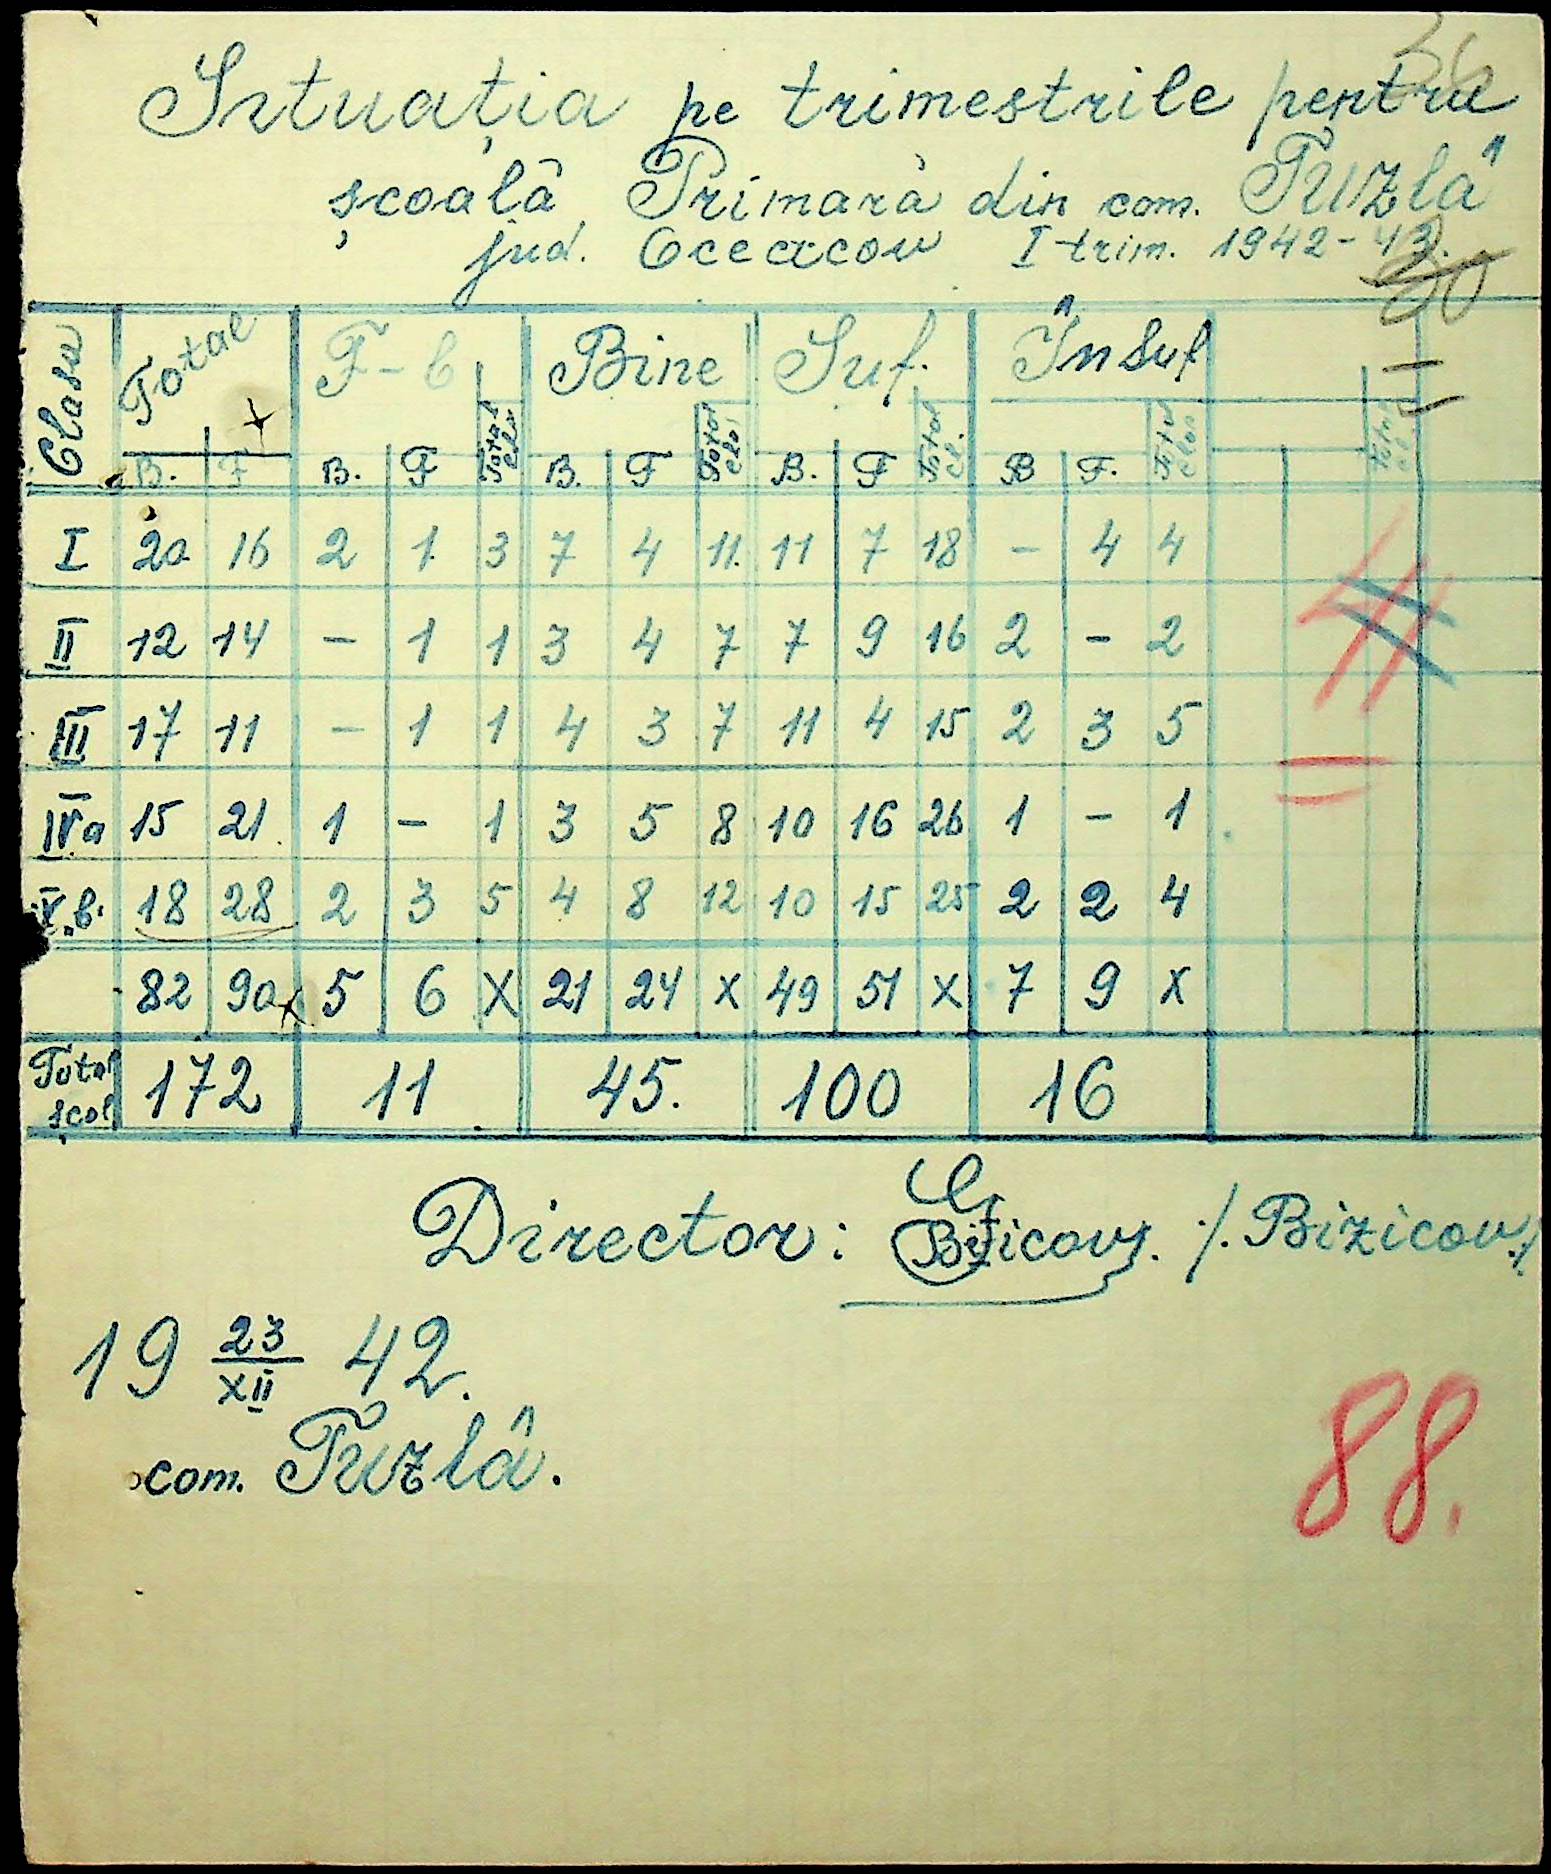 Situația pe trimestrile pentru
școală Primară din com. Tuzlâ
jud. Oceacou I trim. 1942-43.
Clasa Total F-b Bine Suf. Însuf
B. F B. F Total clas B. F Total clas B. F Total cl. B F. Total clas Total cl.
I 20 16 2 1 3 7 4 11. 11 7 18 - 4 4
II 12 14 - 1 1 3 4 7 7 9 16 2 - 2
III 17 11 - 1 1 4 3 7 11 4 15 2 3 5
IVa 15 21 1 - 1 3 5 8 10 16 26 1 - 1
IV.b. 18 28 2 3 5 4 8 12 10 15 25 2 2 4
82 90 5 6 X 21 24 X 49 51 X 7 9 X
Total școl 172 11 45. 100 16
Director: Bizicov. /. Bizicov./
19 23/XII 42.
com. Tuzlâ.
88.